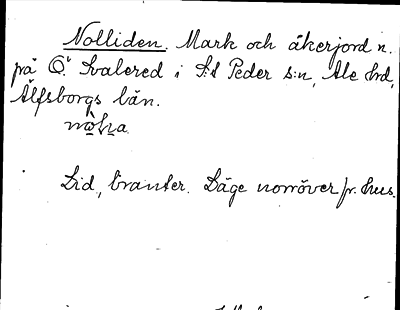 Nolliden. Mark och åkerjord n.
på Ö. Svalered i S:t Peder s:n, Ale hrd,
Älfsborgs län.
Lid, branter. Läge norröver fr. hus.